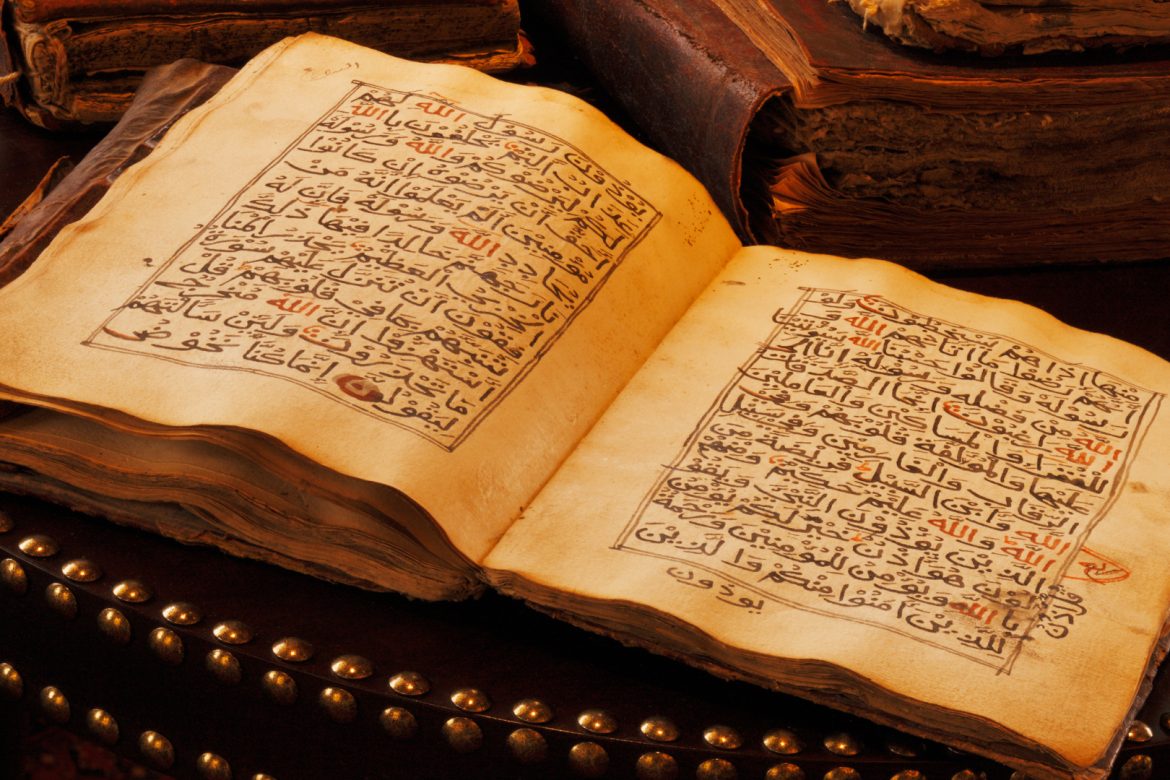 منها اذا هم يسخطون ولو
انهم رضوا ما اتاهم الله
ورسوله وقالوا حسبنا الله سيوتينا
الله من فضله ورسوله انا الى
الله راغبون انما الصدقات
للفقراء والمساكين والعاملين
عليها والمولفة قلوبهم وفي
الرقاب والغارمين وفي سبيل
الله وابن السبيل فريضة من
الله والله عليم حكيم ومنهم
الذين يوذون النبي ويقو
لون هو اذن قل اذن خير لكم يومن
بالله ويومن للمومنين ورحمة
للذين امنوا منكم والذين
يوذون
يوذون رسول الله لهم
عذاب اليم يحلفون بالله
لكم ليرضوكم والله ورسوله
احق ان يرضوه ان كانوا
مومنين الم يعلموا انه من
يحادد الله ورسوله فان له
نار جهنم خالدا فيها ذلك
الخزي العظيم يحذر المنا
فقون ان تنزل عليهم سورة
تنبيهم بما في قلوبهم قل
استهزءوا ان الله مخرج
ما تحذرون ولين سالتهم
ليقولن انما كنا نخوض